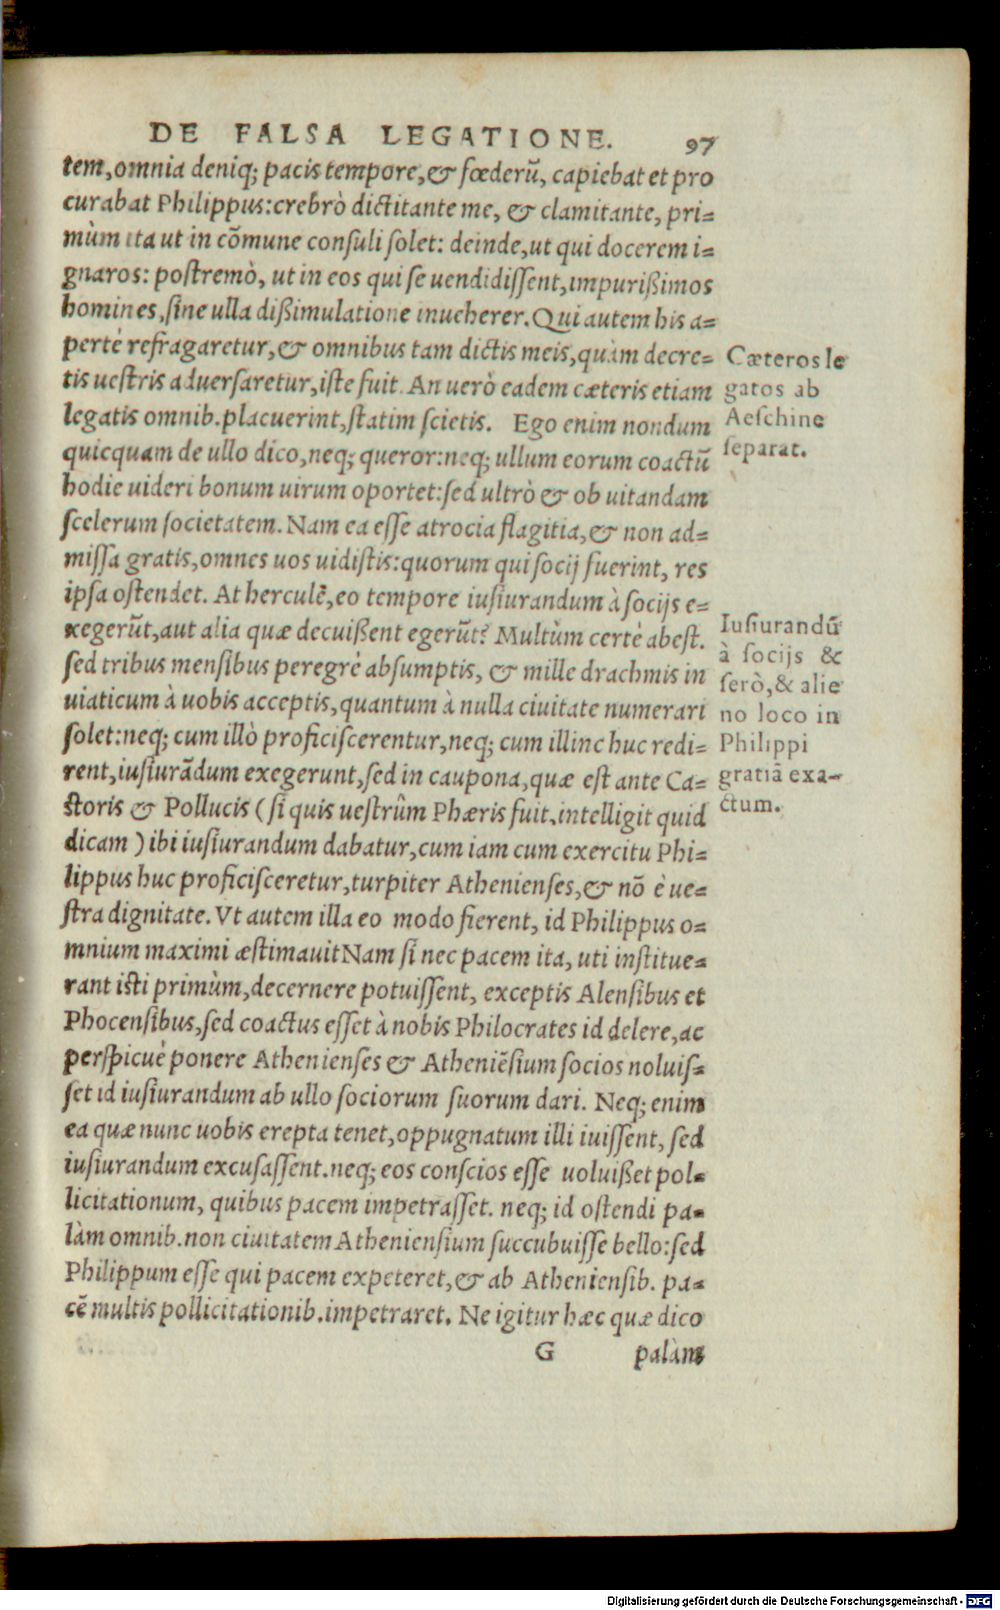 DE FALSA LEGATIONE. 97
tem, omnia deniq; pacis tempore, & fœderũ, capiebat et pro
curabat Philippus: crebrò dictitante me, & clamitante, pri=
mùm ita ut in cõmune consuli solet: deinde, ut qui docerem i=
gnaros: postremò, ut in eos qui se uendidissent, impurißimos
homines, sine ulla dißimulatione inueherer. Qui autem his a=
pertè refragaretur, & omnibus tam dictis meis, quàm decre=
tis uestris aduersaretur, iste fuit. An uerò eadem cæteris etiam
legatis omnib. placuerint, statim scietis. Ego enim nondum
quicquam de ullo dico, neq; queror: neq; ullum eorum coactũ
hodie uideri bonum uirum oportet: sed ultrò & ob uitandam
scelerum societatem. Nam ea esse atrocia flagitia, & non ad=
missa gratis, omnes uos uidistis: quorum qui socij fuerint, res
ipsa ostendet. At herculẽ, eo tempore iusiurandum à socijs e=
xegerũt, aut alia quæ decuißent egerũt? Multùm certè abest.
sed tribus mensibus peregrè absumptis, & mille drachmis in
uiaticum à uobis acceptis, quantum à nulla ciuitate numerari
solet: neq; cum illò proficiscerentur, neq; cum illinc huc redi=
rent, iusiurãdum exegerunt, sed in caupona, quæ est ante Ca=
storis & Pollucis ( si quis uestrûm Phæris fuit, intelligit quid
dicam ) ibi iusiurandum dabatur, cum iam cum exercitu Phi=
lippus huc proficisceretur, turpiter Athenienses, & nõ è ue=
stra dignitate. Vt autem illa eo modo fierent, id Philippus o=
mnium maximi æstimauit Nam si nec pacem ita, uti institue=
rant isti primùm, decernere potuissent, exceptis Alensibus et
Phocensibus, sed coactus esset à nobis Philocrates id delere, ac
perspicuè ponere Athenienses & Atheniẽsium socios noluis=
set id iusiurandum ab ullo sociorum suorum dari. Neq; enim
ea quæ nunc uobis erepta tenet, oppugnatum illi iuissent, sed
iusiurandum excusassent. neq; eos conscios esse uoluißet pol=
licitationum, quibus pacem impetrasset. neq; id ostendi pa=
làm omnib. non ciuitatem Atheniensium succubuisse bello: sed
Philippum esse qui pacem expeteret, & ab Atheniensib. pa=
cẽ multis pollicitationib. impetraret. Ne igitur hæc quæ dico
G palàm
Cæteros le
gatos ab
Aeschine
separat.
Iusiurandũ
à socijs &
serò, & alie
no loco in
Philippi
gratiã exa=
ctum.
Digitalisierung gefördert durch die Deutsche Forschungsgemeinschaft - DFG